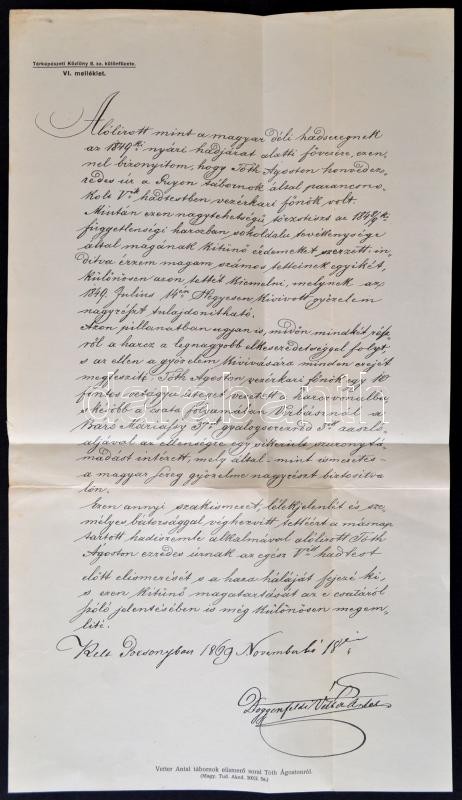 Térképészeti Közlöny 8. sz. különfüzete.
VI. melléklet.
Alólirott mint a magyar déli hadseregnek
az 1849ki nyári hadjárat alatti fővezére, ezen-
nel bizonyitom, hogy Tóth Ágoston honvédez-
redes úr a Guyon tábornok által parancsno-
kolt Vik hadtestben vezérkari főnök volt.
Miután ezen nagytehetségű törzstiszt az 1848/9ki
függetlenségi harczban sokoldalu tevékenysége
által magának kitünő érdemeket szerzett; in-
dítva érzem magam számos tetteinek egyikét,
különösen azon tettét kiemelni, melynek az
1849. Julius 14én Hegyesen kivivott győzelem
nagyrészt tulajdonítható.
Azon pillanatban ugyanis, midőn mindkét rész-
ről a harcz a legnagyobb elkeseredetséggel folyt,
s az ellen a győzelem kivivására minden erejét
megfeszité Tóth Ágoston vezérkari főnök egy 10
fontos üteget vezetett a harczvonalba
s később a csata folyamata a
Báró Máriássy 3ik
aljával az ellenségre egy szuronytá-
madást intézett, mely által – mint ismeretes –
a magyar sereg győzelme nagyrészt biztositva
lőn.
Ezen annyi szakismeret, lélekjelenlét és sze-
mélyes bátorsággal véghezvitt tettéért a másnap
tartott hadiszemle alkalmával alólirott Tóth
Ágoston ezredes úrnak az egész Vik hadtest
előtt elismerését s a haza háláját fejezé ki,
s ezen kitünő magatartását az e csatáról
szóló jelentésében is még különösen megem-
lité.
Kelt Pozsonyban 1869 Novemberhó 18én
Doggenfeldi Vetter Antal
Vetter Antal tábornok elismerő sorai Tóth Ágostonról.
(Magy. Tud. Akad. Irod. 5x.)
darabanth